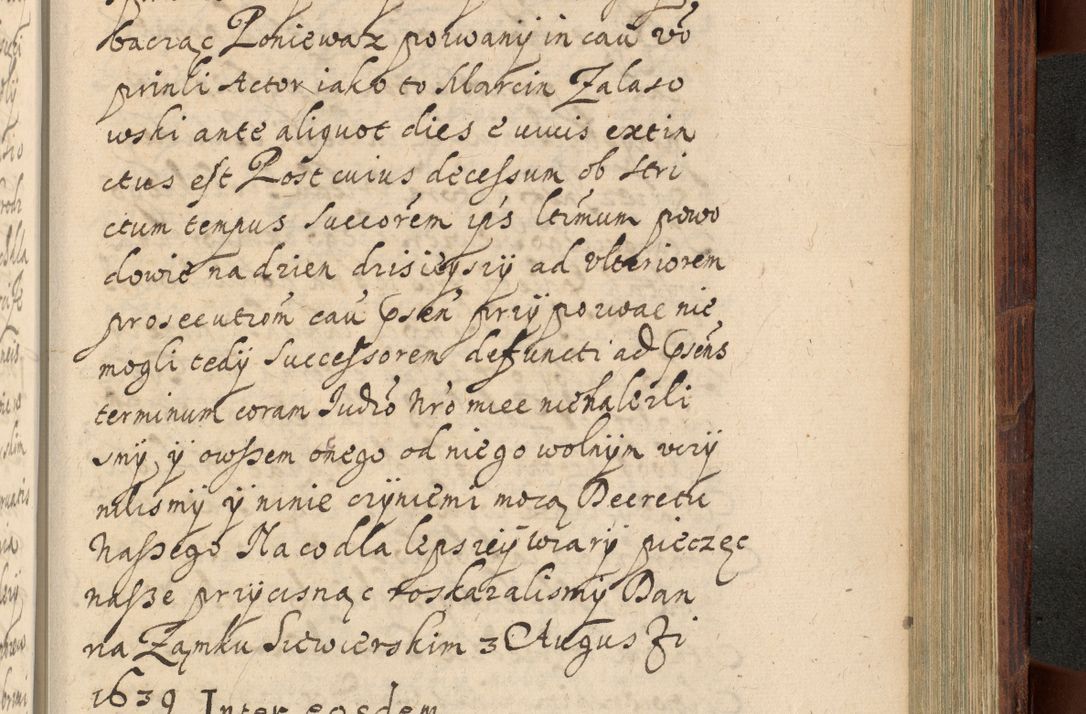 bacząc Poniewaz pozwany in cau vo
prinli Actor iako to Marcin Zalaso
wski ante aliquot dies e vivis extin
ctus est Post cuius decessum ob stri
ctum tempus succorem ips ltimum powo
dowie na dzien dzisieyszÿ ad vlteriorem
prosecution cau psen przÿpozwac nie
mogli tedÿ successorem defuncti ad psens
terminum coram Iudio Nro miec nienalezli
smÿ, ÿ owszem onego od niego wolnÿm vczÿ
nilismÿ ÿ ninie czÿniemi mocą Decretu
Naszego Na co dla lepszeÿ wiarÿ pieczęc
nasze przÿcisnąc roskazalismÿ Dan
na Zamku Siewierskim 3 Augusti
1639 Inter eosdem